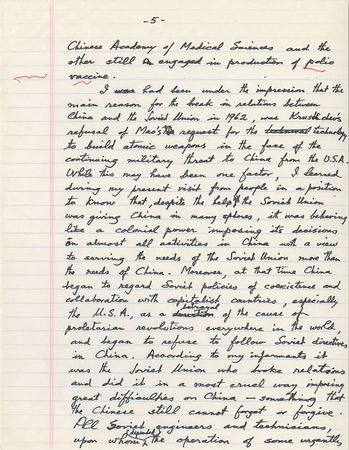 - 5 -
Chinese Academy of Medical Sciences and the
other still engaged in production of polio
vaccine.
I was had been under the impression that the
main reason for the break in relations between
China and the Soviet Union in 1962, was Kruschev's
refusal of Mao's request for the technical technology
to build atomic weapons in the face of the
continuing military threat to China from the U.S.A.
While this may have been one factor, I learned
during my present visit from people in a position
to know that, despite the help the Soviet Union
was giving China in many spheres, it was behaving
like a colonial power imposing its decisions
on almost all activities in China with a view
to serving the needs of the Soviet Union more than
the needs of China. Moreover, at that time China
began to regard Soviet policies of coexistence and
collaboration with capitalist countries, especially
betrayal
the U.S.A., as a of the cause of
proletarian revolutions everywhere in the world,
and began to refuse to follow Soviet directives
in China. According to my informants it
was the Soviet Union who broke relations
and did it in a most cruel way imposing
great difficulties on China — something that
the Chinese still cannot forget or forgive.
All Soviet engineers and technicians,
depended
upon whom the operation of some urgently